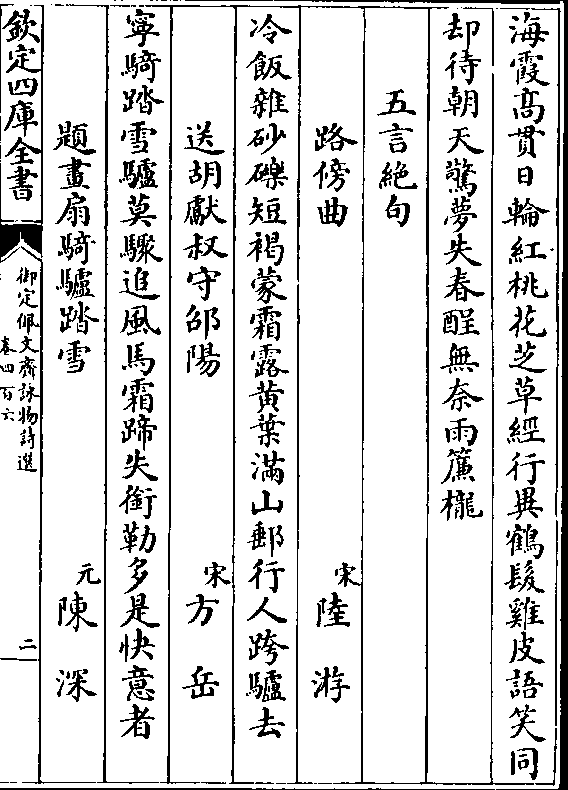 海霞髙貫日輪紅桃花芝草經行異鶴髮雞皮語笑同
却待朝天驚夢失春酲無奈雨簾櫳
五言絶句
路傍曲 宋陸游
冷飯雜砂礫短褐蒙霜露黄葉滿山郵行人跨驢去
送胡獻叔守邵陽 宋方岳
寧騎踏雪驢莫驟追風馬霜蹄失銜勒多是快意者
題畫扇騎驢踏雪 元陳深
欽定四庫全書
御定佩文齋詠物詩選
卷四百六
二